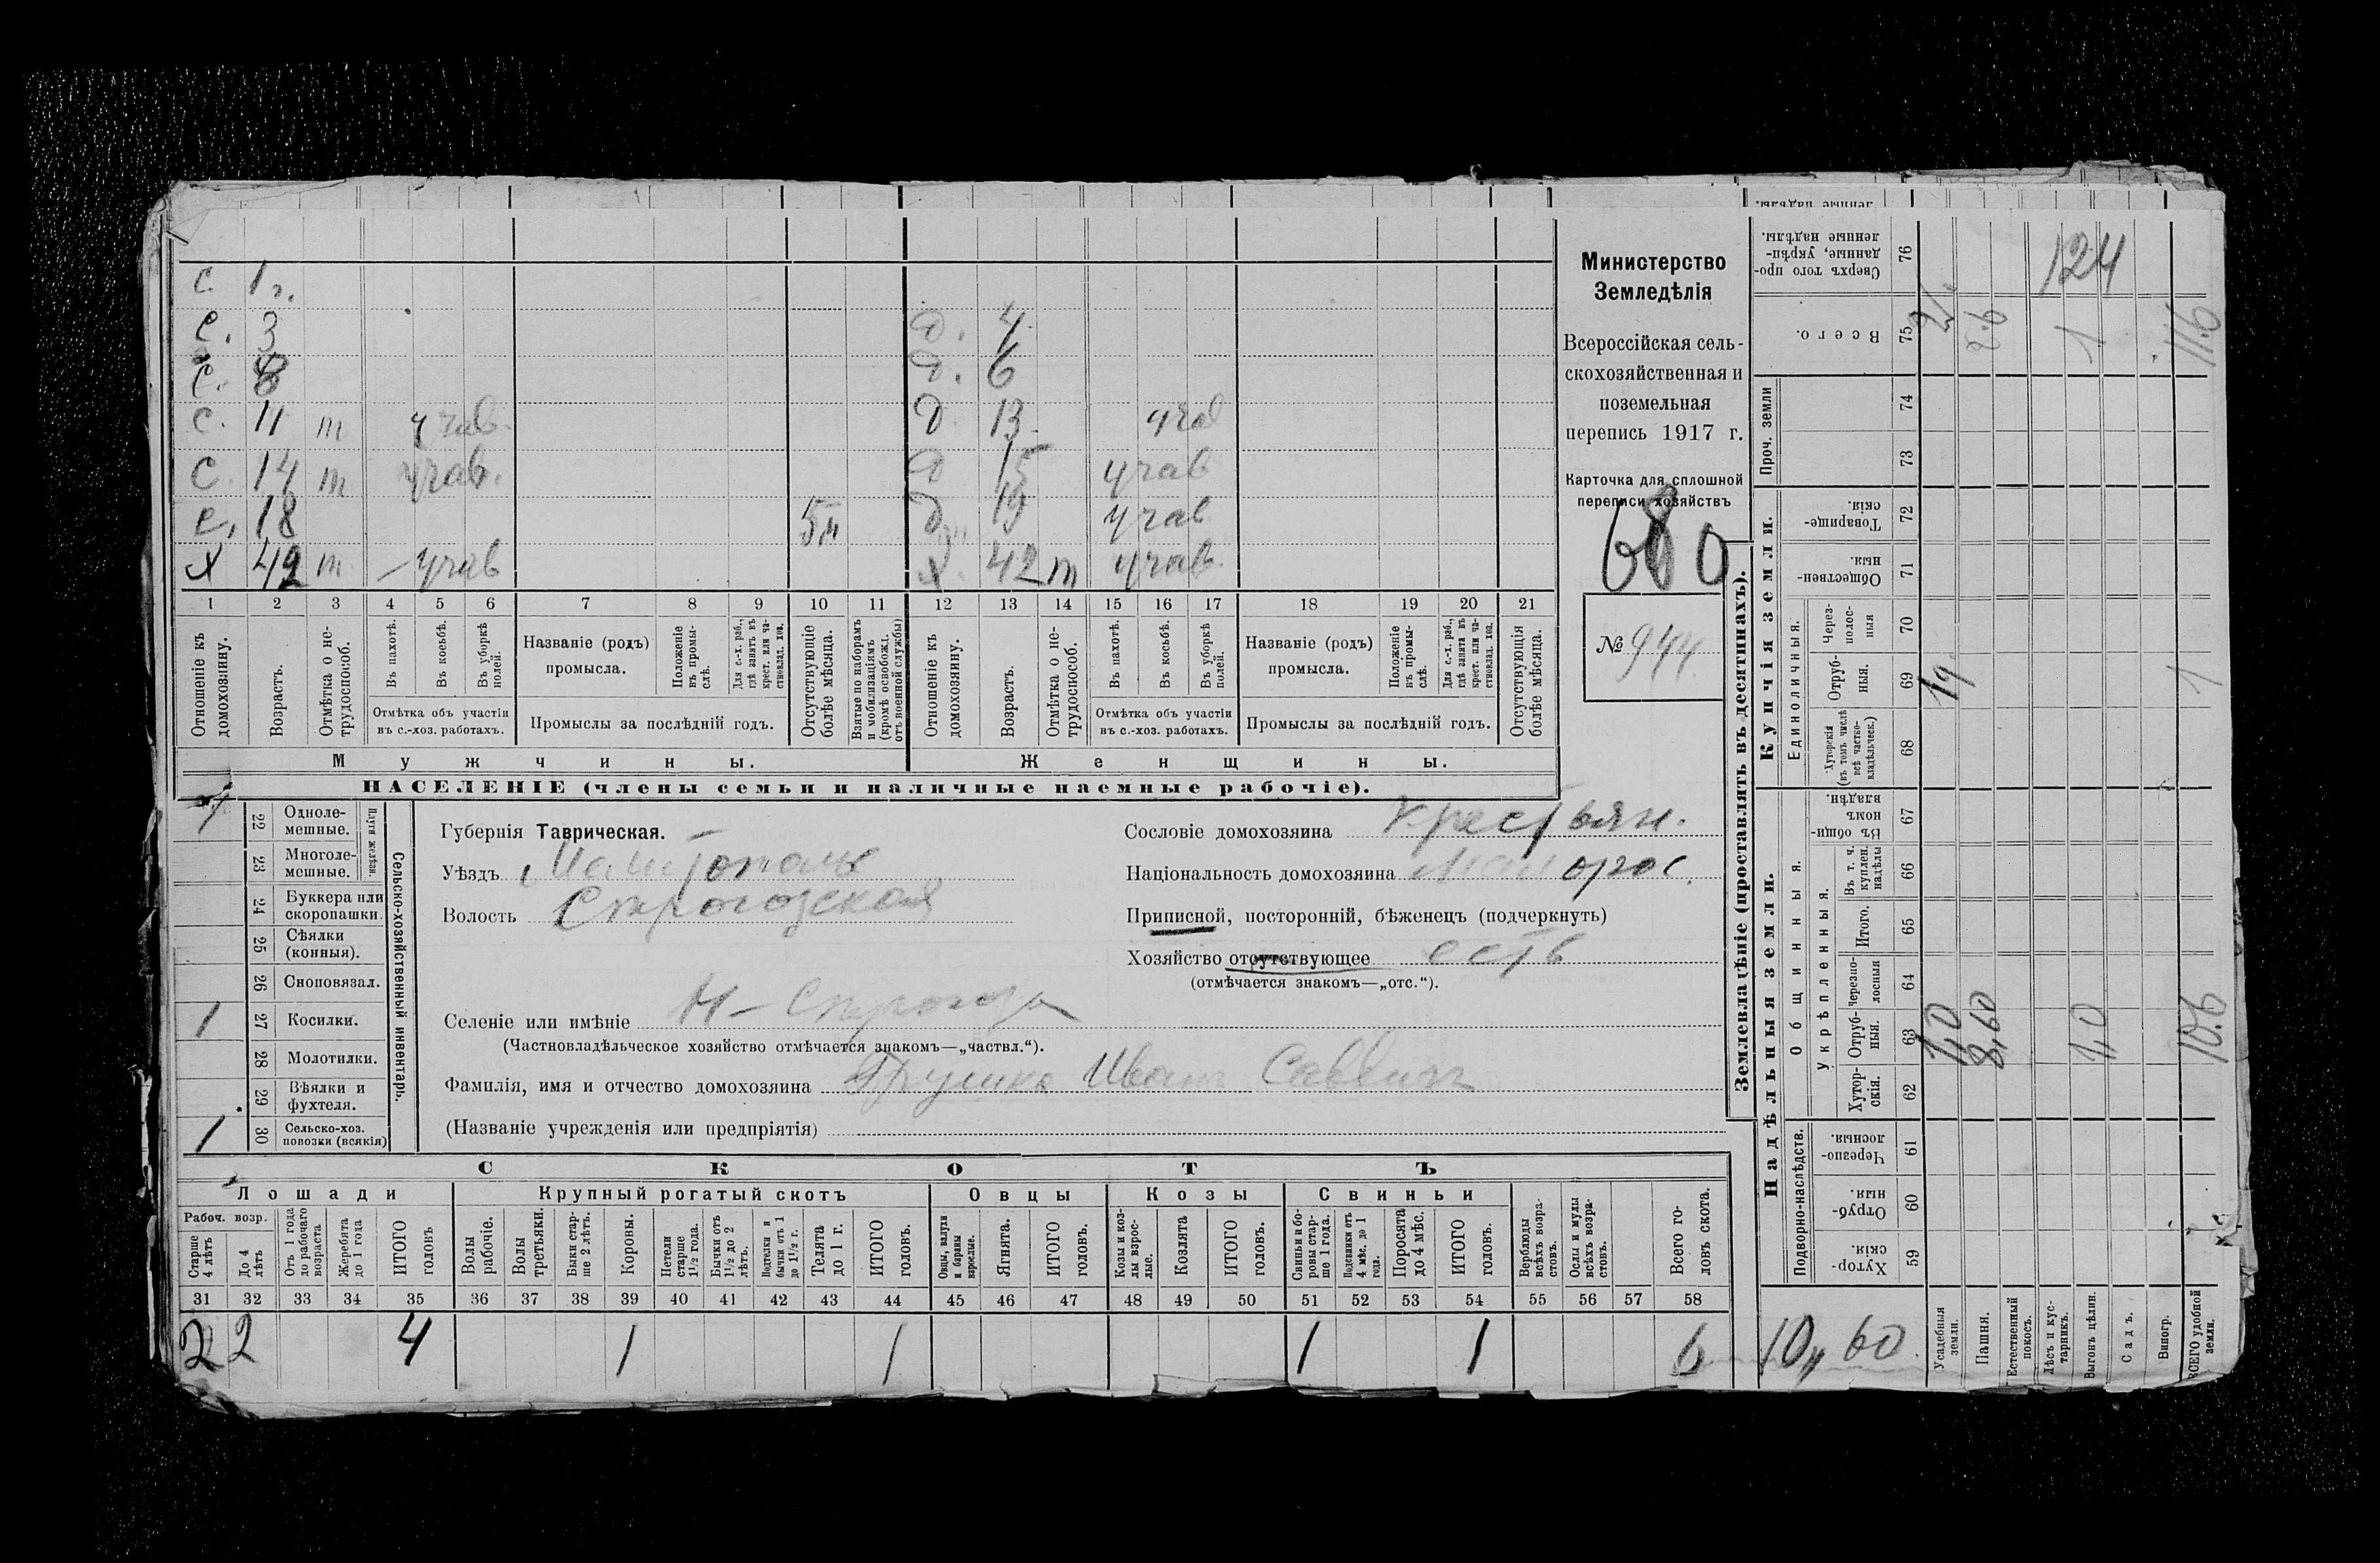 с 1 г.
с. 3 д. 4
с. 8 д. 6
с. 11 т учав. д. 13 учав
с. 14 т учав. д 15 учав
с. 18 д. 19 учав
х 42 т. – учав х. 42 т учав.
1 2 3 4 5 6 7 8 9 10 11 12 13 14 15 16 17 18 19 20 21
Отношеніе къ домохозяину.
Возрастъ.
Отмѣтка о не-трудоспособ.
Въ пахотѣ.
Въ косьбѣ.
Въ уборкѣ полей.
Отмѣтка объ участіи въ с.-хоз. работахъ.
Названіе (родъ) промысла.
Положеніе въ промы-слѣ.
Для с.-х. раб., гдѣ занятъ въ крест. или ча-стновлад. хоз.
Промыслы за послѣдній годъ.
Отсутствующіе болѣе мѣсяца.
Взятые по наборамъ и мобилизаціямъ (кромѣ освобожд. отъ военной службы)
Отношеніе къ домохозяину.
Возрастъ.
Отмѣтка о не-трудоспособ.
Въ пахотѣ.
Въ косьбѣ.
Въ уборкѣ полей.
Отмѣтка объ участіи въ с.-хоз. работахъ.
Названіе (родъ) промысла.
Положеніе въ промы-слѣ.
Для с.-х. раб., гдѣ занята въ крест. или ча-стновлад. хоз.
Промыслы за послѣдній годъ.
Отсутствующія болѣе мѣсяца.
Мужчины. Женщины.
НАСЕЛЕНІЕ (члены семьи и наличные наемные рабочіе).
Министерство
Земледѣлія
Всероссійская сель-
скохозяйственная и
поземельная
перепись 1917 г.
Карточка для сплошной
переписи хозяйствъ
680
№ 944.
Сельско-хозяйственный инвентарь.
Плуги желѣзн.
1 22 Одноле-мешные.
23 Многоле-мешные.
24 Буккера или скоропашки.
25 Сѣялки (конныя).
26 Сноповязал.
1 27 Косилки.
28 Молотилки.
29 Вѣялки и фухтеля.
1 30 Сельско-хоз. повозки (всякія)
Губернія Таврическая.
Уѣздъ Мелитополь
Волость Строгозская
Селеніе или имѣніе Н – Строгозы
(Частновладѣльческое хозяйство отмѣчается знакомъ—„частвл.“).
Фамилія, имя и отчество домохозяина Грушко Иванъ Саввичъ
(Названіе учрежденія или предпріятія)
Сословіе домохозяина крестьян.
Національность домохозяина Малорос.
Приписной, посторонній, бѣженецъ (подчеркнуть)
Хозяйство отсутствующее есть
(отмѣчается знакомъ—„отс.“).
СКОТЪ
Лошади Крупный рогатый скотъ Овцы Козы Свиньи
Рабоч. возр.
Старше 4 лѣтъ
До 4 лѣтъ
Отъ 1 года до рабочаго возраста
Жеребята до 1 года
ИТОГО головъ
Волы рабочіе.
Волы третьяки.
Быки стар-ше 2 лѣтъ.
Коровы.
Петели старше 1½ года.
Бычки отъ 1½ до 2 лѣтъ.
Подтелки и бычки отъ 1 до 1½ г.
Телята до 1 г.
ИТОГО головъ.
Овцы, валухи и бараны взрослые.
Ягнята.
ИТОГО головъ.
Козы и коз-лы взрос-лые.
Козлята
ИТОГО головъ.
Свиньи и бо-ровы стар-ше 1 года.
Подсвинки отъ 4 мѣс. до 1 года.
Поросята до 4 мѣс.
ИТОГО головъ.
Верблюды всѣхъ возра-стовъ.
Ослы и мулы всѣхъ возра-стовъ.
Всего го-ловъ скота.
31 32 33 34 35 36 37 38 39 40 41 42 43 44 45 46 47 48 49 50 51 52 53 54 55 56 57 58
2 2 4 1 1 1 1 6
Землевладѣніе (проставлять въ десятинахъ).
Надѣльныя земли. Купчія земли. Проч. земли
Подворно-наслѣдств.
Общинныя.
Укрѣпленныя.
Единоличныя.
Хутор-скія. 59
Отруб-ныя. 60
Черезпо-лосныя. 61
Хутор-скія. 62
Отруб-ныя. 63
Черезпо-лосныя 64
Итого. 65
Въ т. ч. куплен. надѣлы 66
Въ общи-номъ владѣн. 67
Хуторскія (въ томъ числѣ всѣ частно-владѣльческ.) 68
Отруб-ныя. 69
Через-полос-ныя 70
Обществен-ныя. 71
Товарище-скія. 72
73
74
Всего. 75
Сверхъ того про-данные, укрѣп-ленные надѣлы. 76
Усадебныя земли.
Пашня.
Естественный покосъ.
Лѣсъ и кус-тарникъ.
Выгонъ цѣлин.
Садъ.
Виногр.
ВСЕГО удобной земли.
1,0
8,60
1,0
10.6
1
124
1
11.6
10,, 60